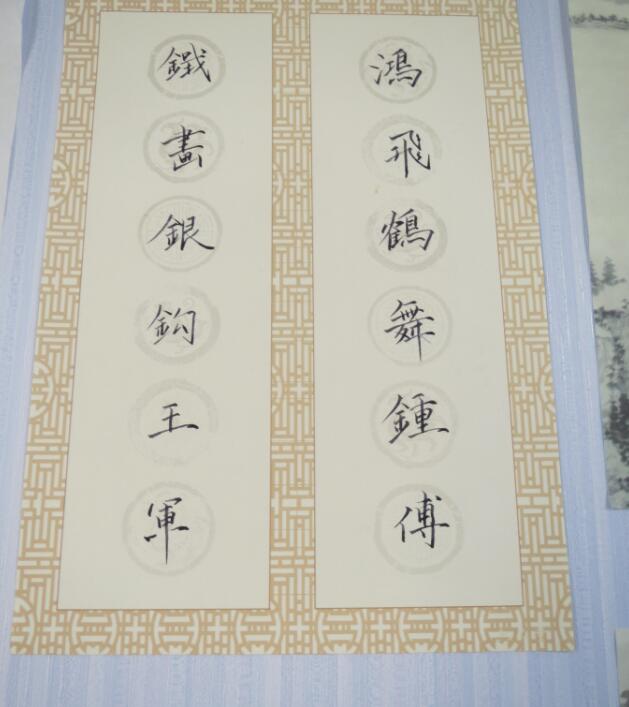 鴻飛鶴舞鍾傅
鐵畫銀鈎王軍